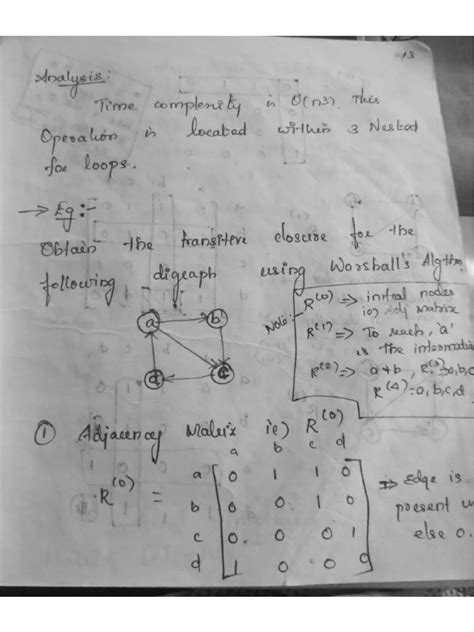 13
Analysis:
Time complexity is O(n3). This
Operation is located within 3 Nested
for loops.
→ Eg:-
Obtain the transitive closure for the
following digraph using Warshall's Algthm
Note:
R(0) ⇒ initial nodes
ie) Adj Matrix
R(1) ⇒ To reach, 'a'
is the intermedia
R(2) ⇒ a+b, R(3) ⇒ a,b,c
R(4) = a, b, c, d
a b
d c
① Adjacency Matrix ie) R(0)
a b c d
R(0) =
a 0 1 1 0
b 0 0 1 0
c 0 0 0 1
d 1 0 0 0
⇒ Edge is
present
else 0.